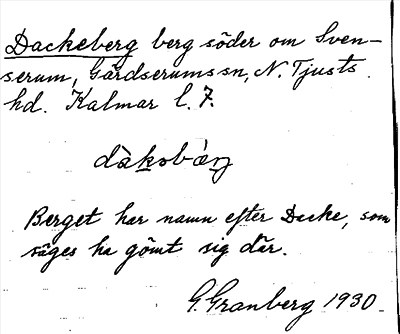 Dackeberg berg söder om Sven-
serum, Gärdserumssn, N. Tjusts
hd. Kalmar l. 7.
dàkobæ̀rŋ
Berget har namn efter Dacke, som
säges ha gömt sig där.
G. Granberg 1930.